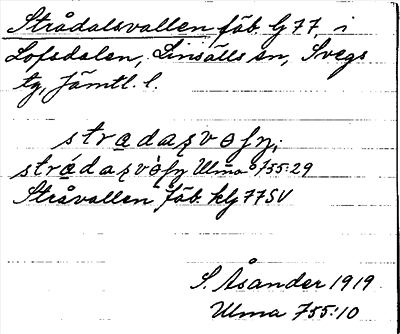 Strådalsvallen fäb. Lj 77, i
Lofsdalen, Linsälls sn, Svegs
tg, Jämtl. l.
stradaṣvoḷy;
strádaṣvòḷy Ulma 755:29
Stråvallen fäb. klj 77 SV
S. Åsander 1919
Ulma 755:10